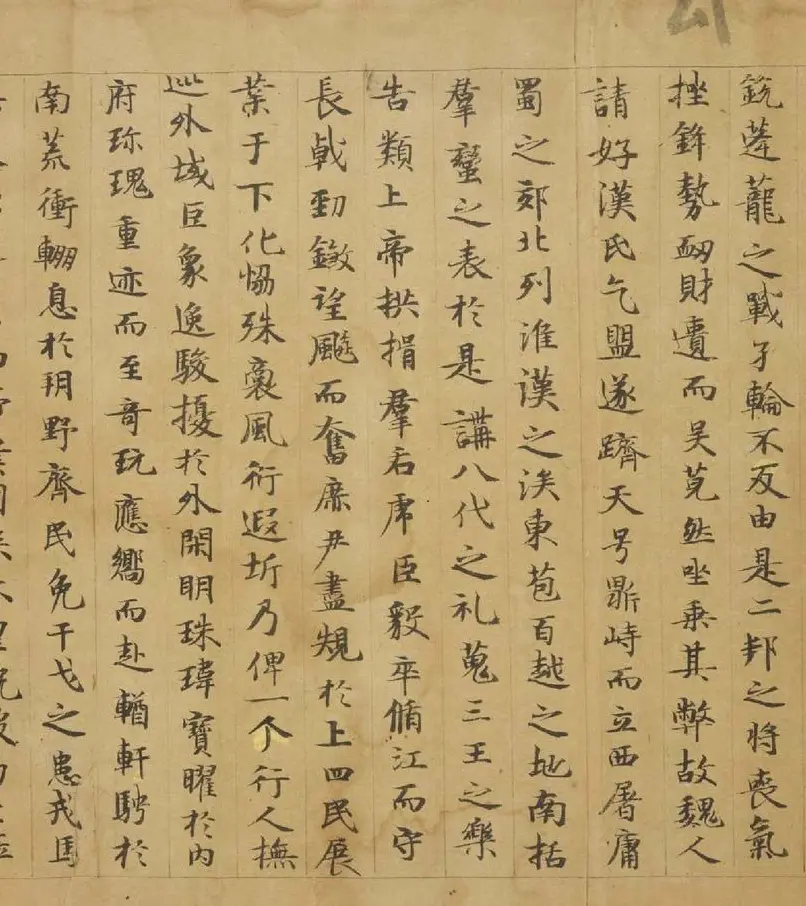 銳蓬蘢之戰孑輪不反由是二邦之將喪氣
挫鋒勢衂財遺而吳莞然坐乘其弊故魏人
請好漢氏乞盟遂躋天号鼎峙而立西屠庸
蜀之郊北列淮漢之涘東苞百越之地南括
羣蠻之表於是講八代之礼蒐三王之樂
告類上帝拱揖羣后虎臣毅卒脩江而守
長戟勁鎩望飈而奮庶尹盡規於上四民展
業于下化恊殊裔風衍遐圻乃俾一个行人撫
巡外域臣象逸駿擾於外閑明珠瑋寶曜於內
府珎瑰重迹而至奇玩應嚮而赴輶軒騁於
南荒衝輣息於玥野齊民免干戈之患戎馬